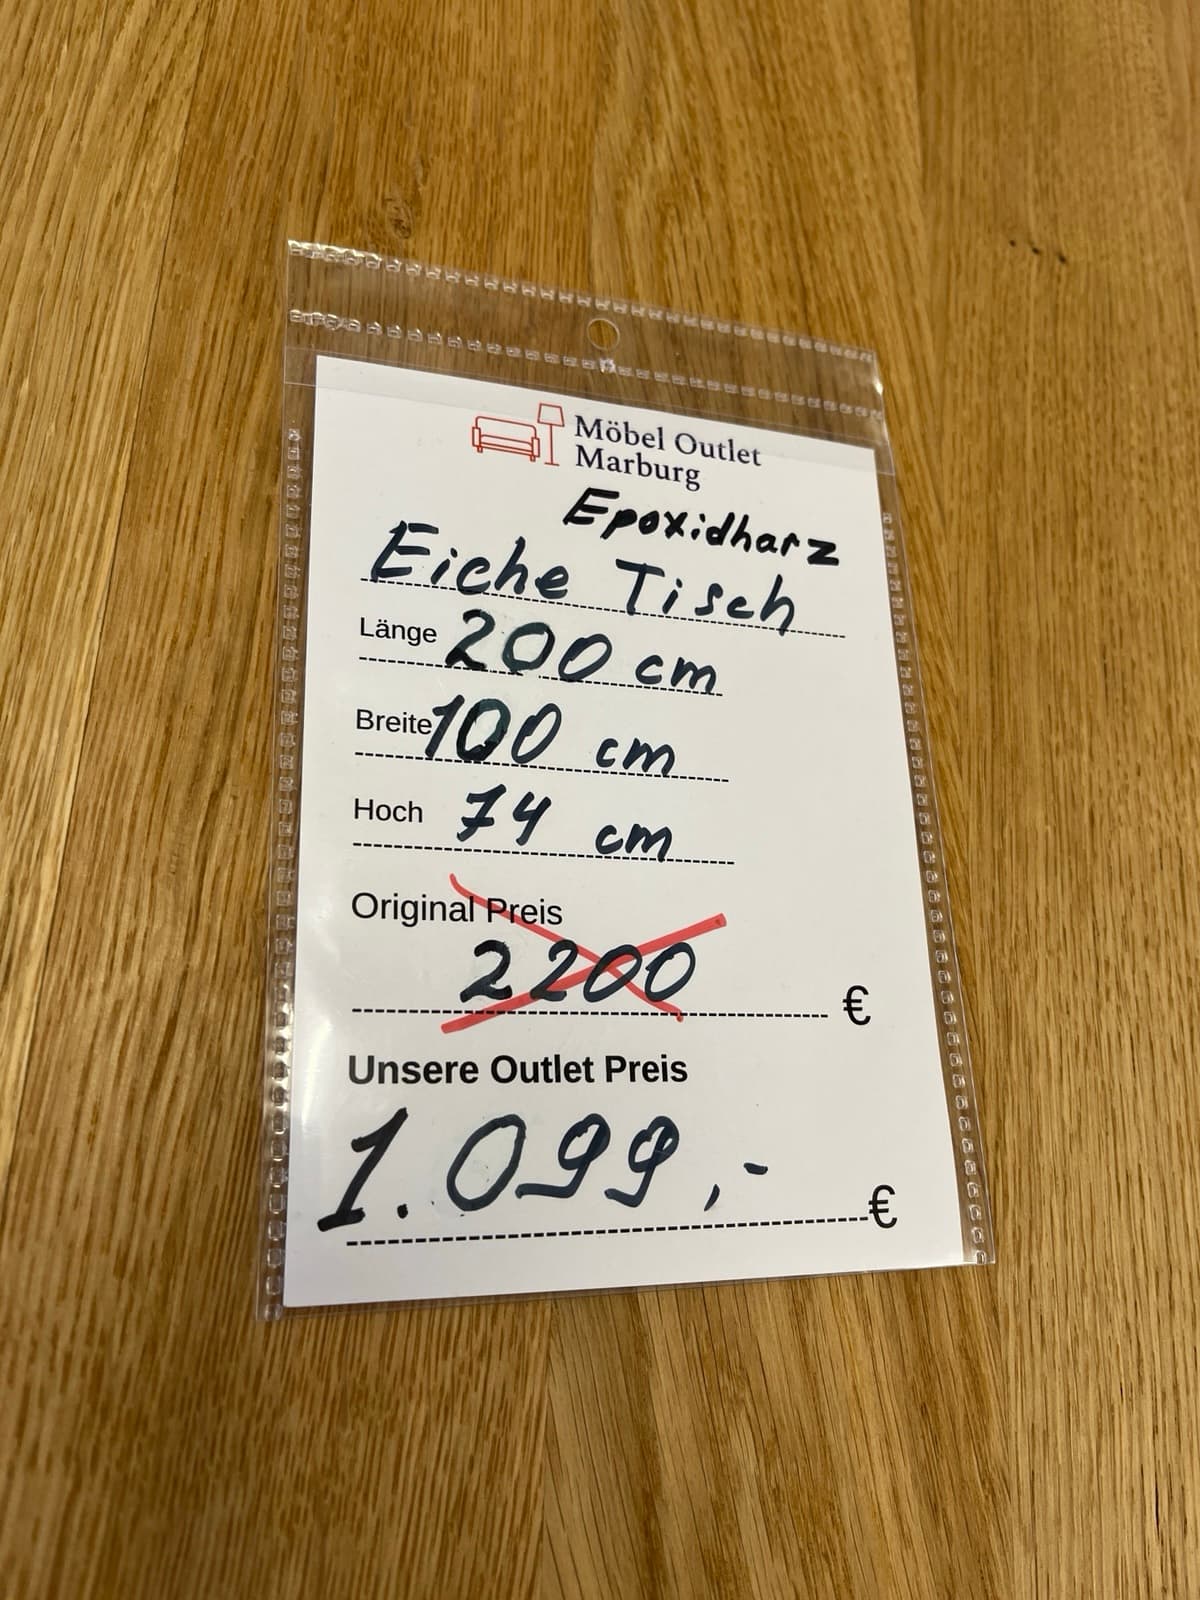 Möbel Outlet
Marburg
Epoxidharz
Eiche Tisch
Länge 200 cm
Breite 100 cm
Hoch 74 cm
Original Preis
2200 €
Unsere Outlet Preis
1.099,- €